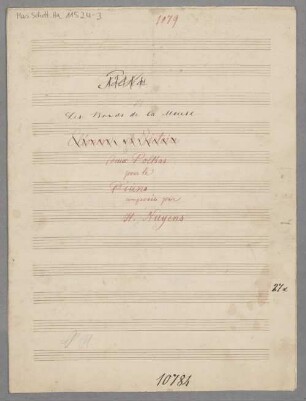 Mus. Schott. Ha 11524-3
1079
Les Bords de la Meuse
deux Polkas
pour le
Piano
composées par
H. Nuyens
27c
10784